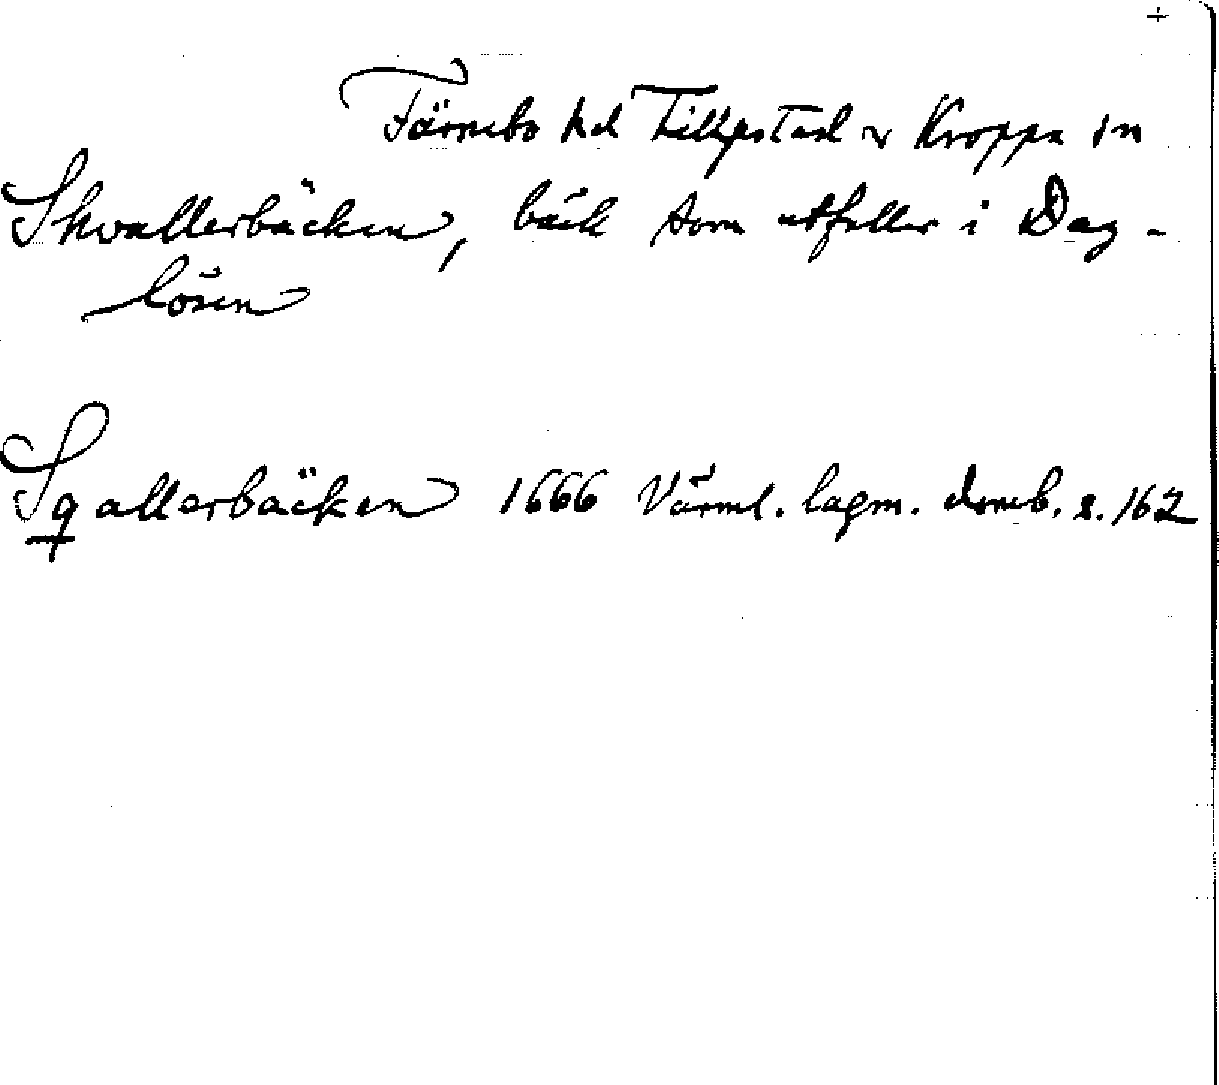 +
Färnebo hd Filipstad & Kroppa sn
Skvallerbäcken, bäck som utfaller i Dag-
lösen
Sqallerbäcken 1666 Värml. lagm. domb. 2. 162